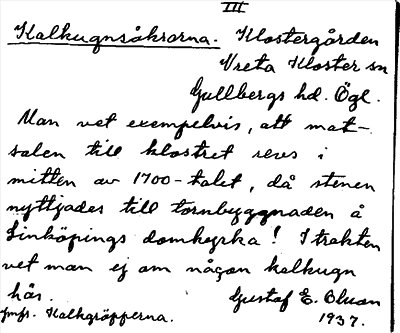 III
Kalkugnsåkrarna. Klostergården
Vreta Kloster sn
Gullbergs hd. Ögl.
Man vet exempelvis, att mat-
salen till klostret revs i
mitten av 1700-talet, då stenen
nyttjades till tornbyggnaden å
Linköpings domkyrka! I trakten
vet man ej om någon kalkugn
här. Gustaf E. Bluan
jmfr. Kalkgröpperna. 1937.